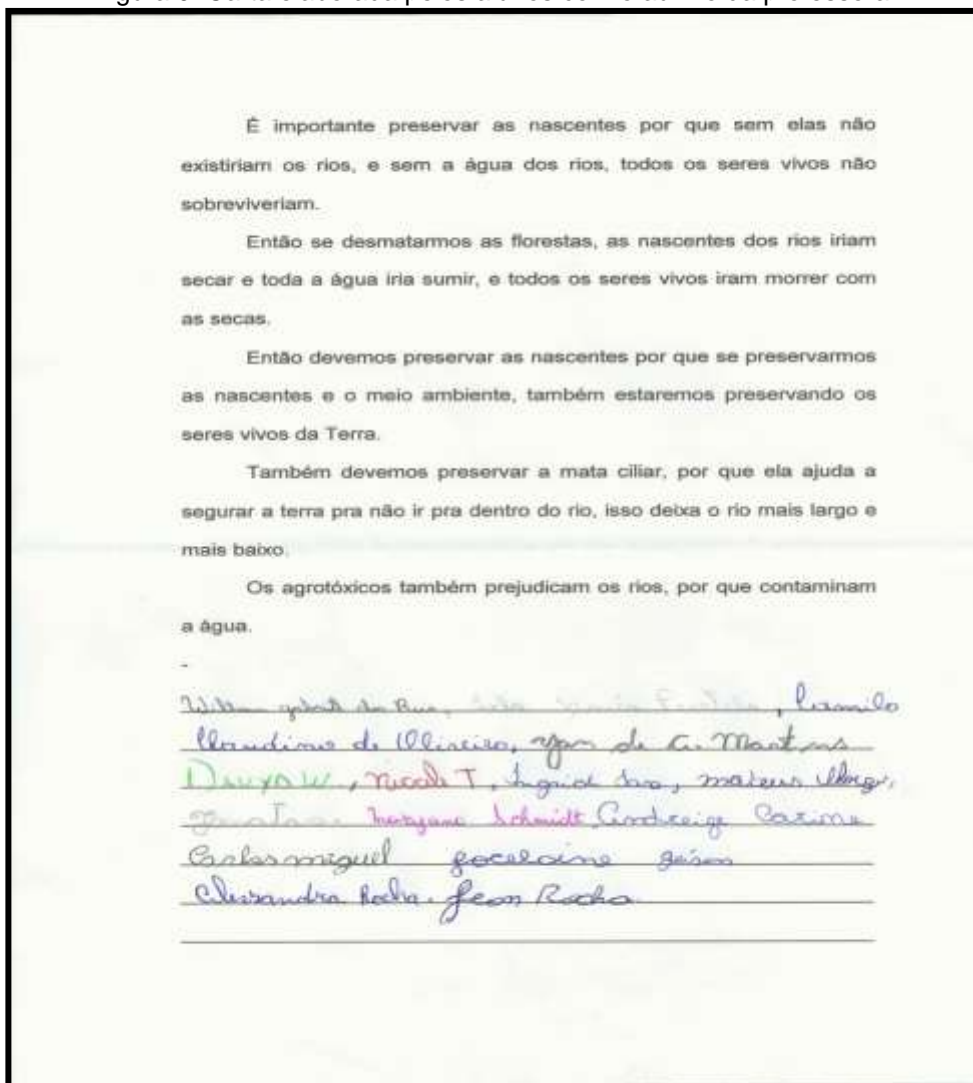 É importante preservar as nascentes por que sem elas não
existiriam os rios, e sem a água dos rios, todos os seres vivos não
sobreviveriam.
Então se desmatarmos as florestas, as nascentes dos rios iriam
secar e toda a água iria sumir, e todos os seres vivos iram morrer com
as secas.
Então devemos preservar as nascentes por que se preservarmos
as nascentes e o meio ambiente, também estaremos preservando os
seres vivos da Terra.
Também devemos preservar a mata ciliar, por que ela ajuda a
segurar a terra pra não ir pra dentro do rio, isso deixa o rio mais largo e
mais baixo.
Os agrotóxicos também prejudicam os rios, por que contaminam
a água.
-
de Oliveira, de Martins
Nicole T, Ingrid mateus
Schmidt, Carine
Carlos miguel
Alessandra Rocha. Jean Rocha